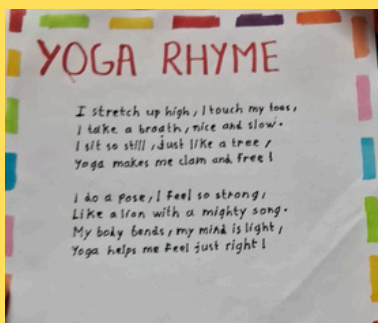 YOGA RHYME
I stretch up high, I touch my toes,
I take a broath, nice and slow.
I sit so still, Just like a tree,
Yoga makes me clam and free!
I do a pose, I feel so strong,
Like a lion with a mighty song.
My body bends, my mind is light,
Yoga helps me feel just right!